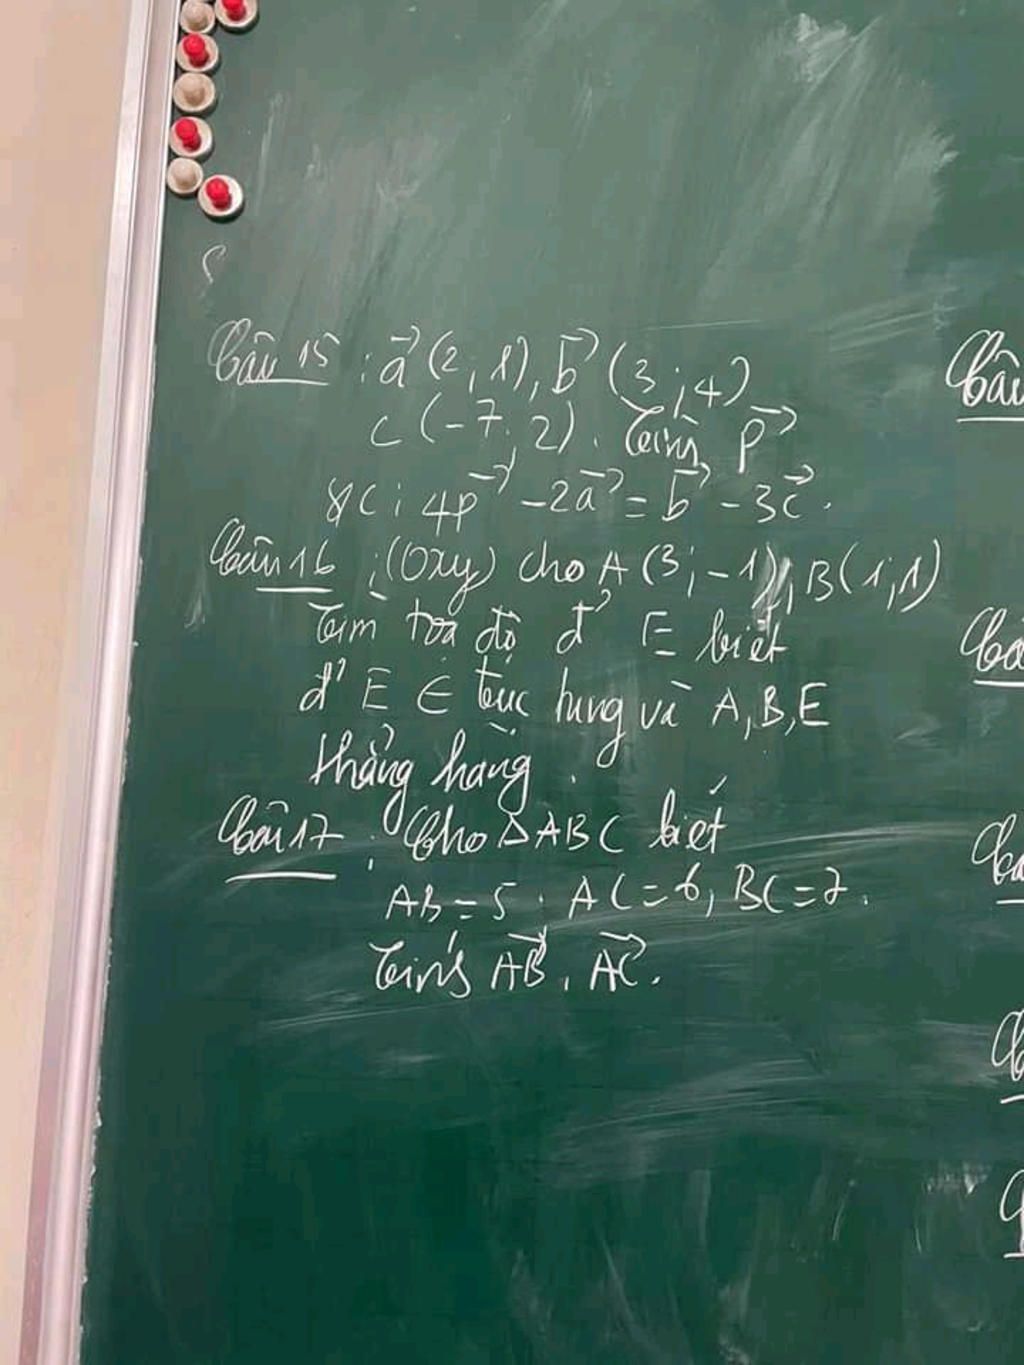 Câu 15 : a⃗ (2 ; 1), b⃗ (3 ; 4)
c (-7 ; 2). Tính p⃗
: 4p⃗ - 2a⃗ = b⃗ - 3c⃗.
Câu 16 : (Oxy) cho A (3 ; -1), B(1 ; 1)
Tìm toạ độ đ' E biết
đ' E ∈ trục tung và A, B, E
thẳng hàng.
Câu 17 : Cho ΔABC biết
AB = 5. AC = 6, BC = 7.
Tính AB⃗ . AC⃗.
Câu